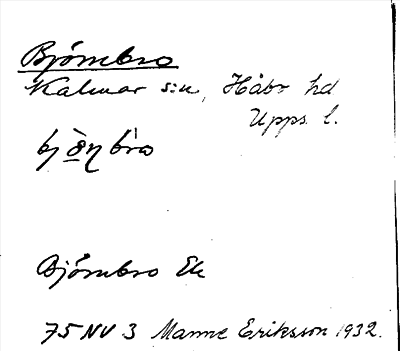 Björnbro
Kalmar s:n, Håbo hd
Upps. l.
Björnbro Ek
75 NV 3 Manne Eriksson 1932.